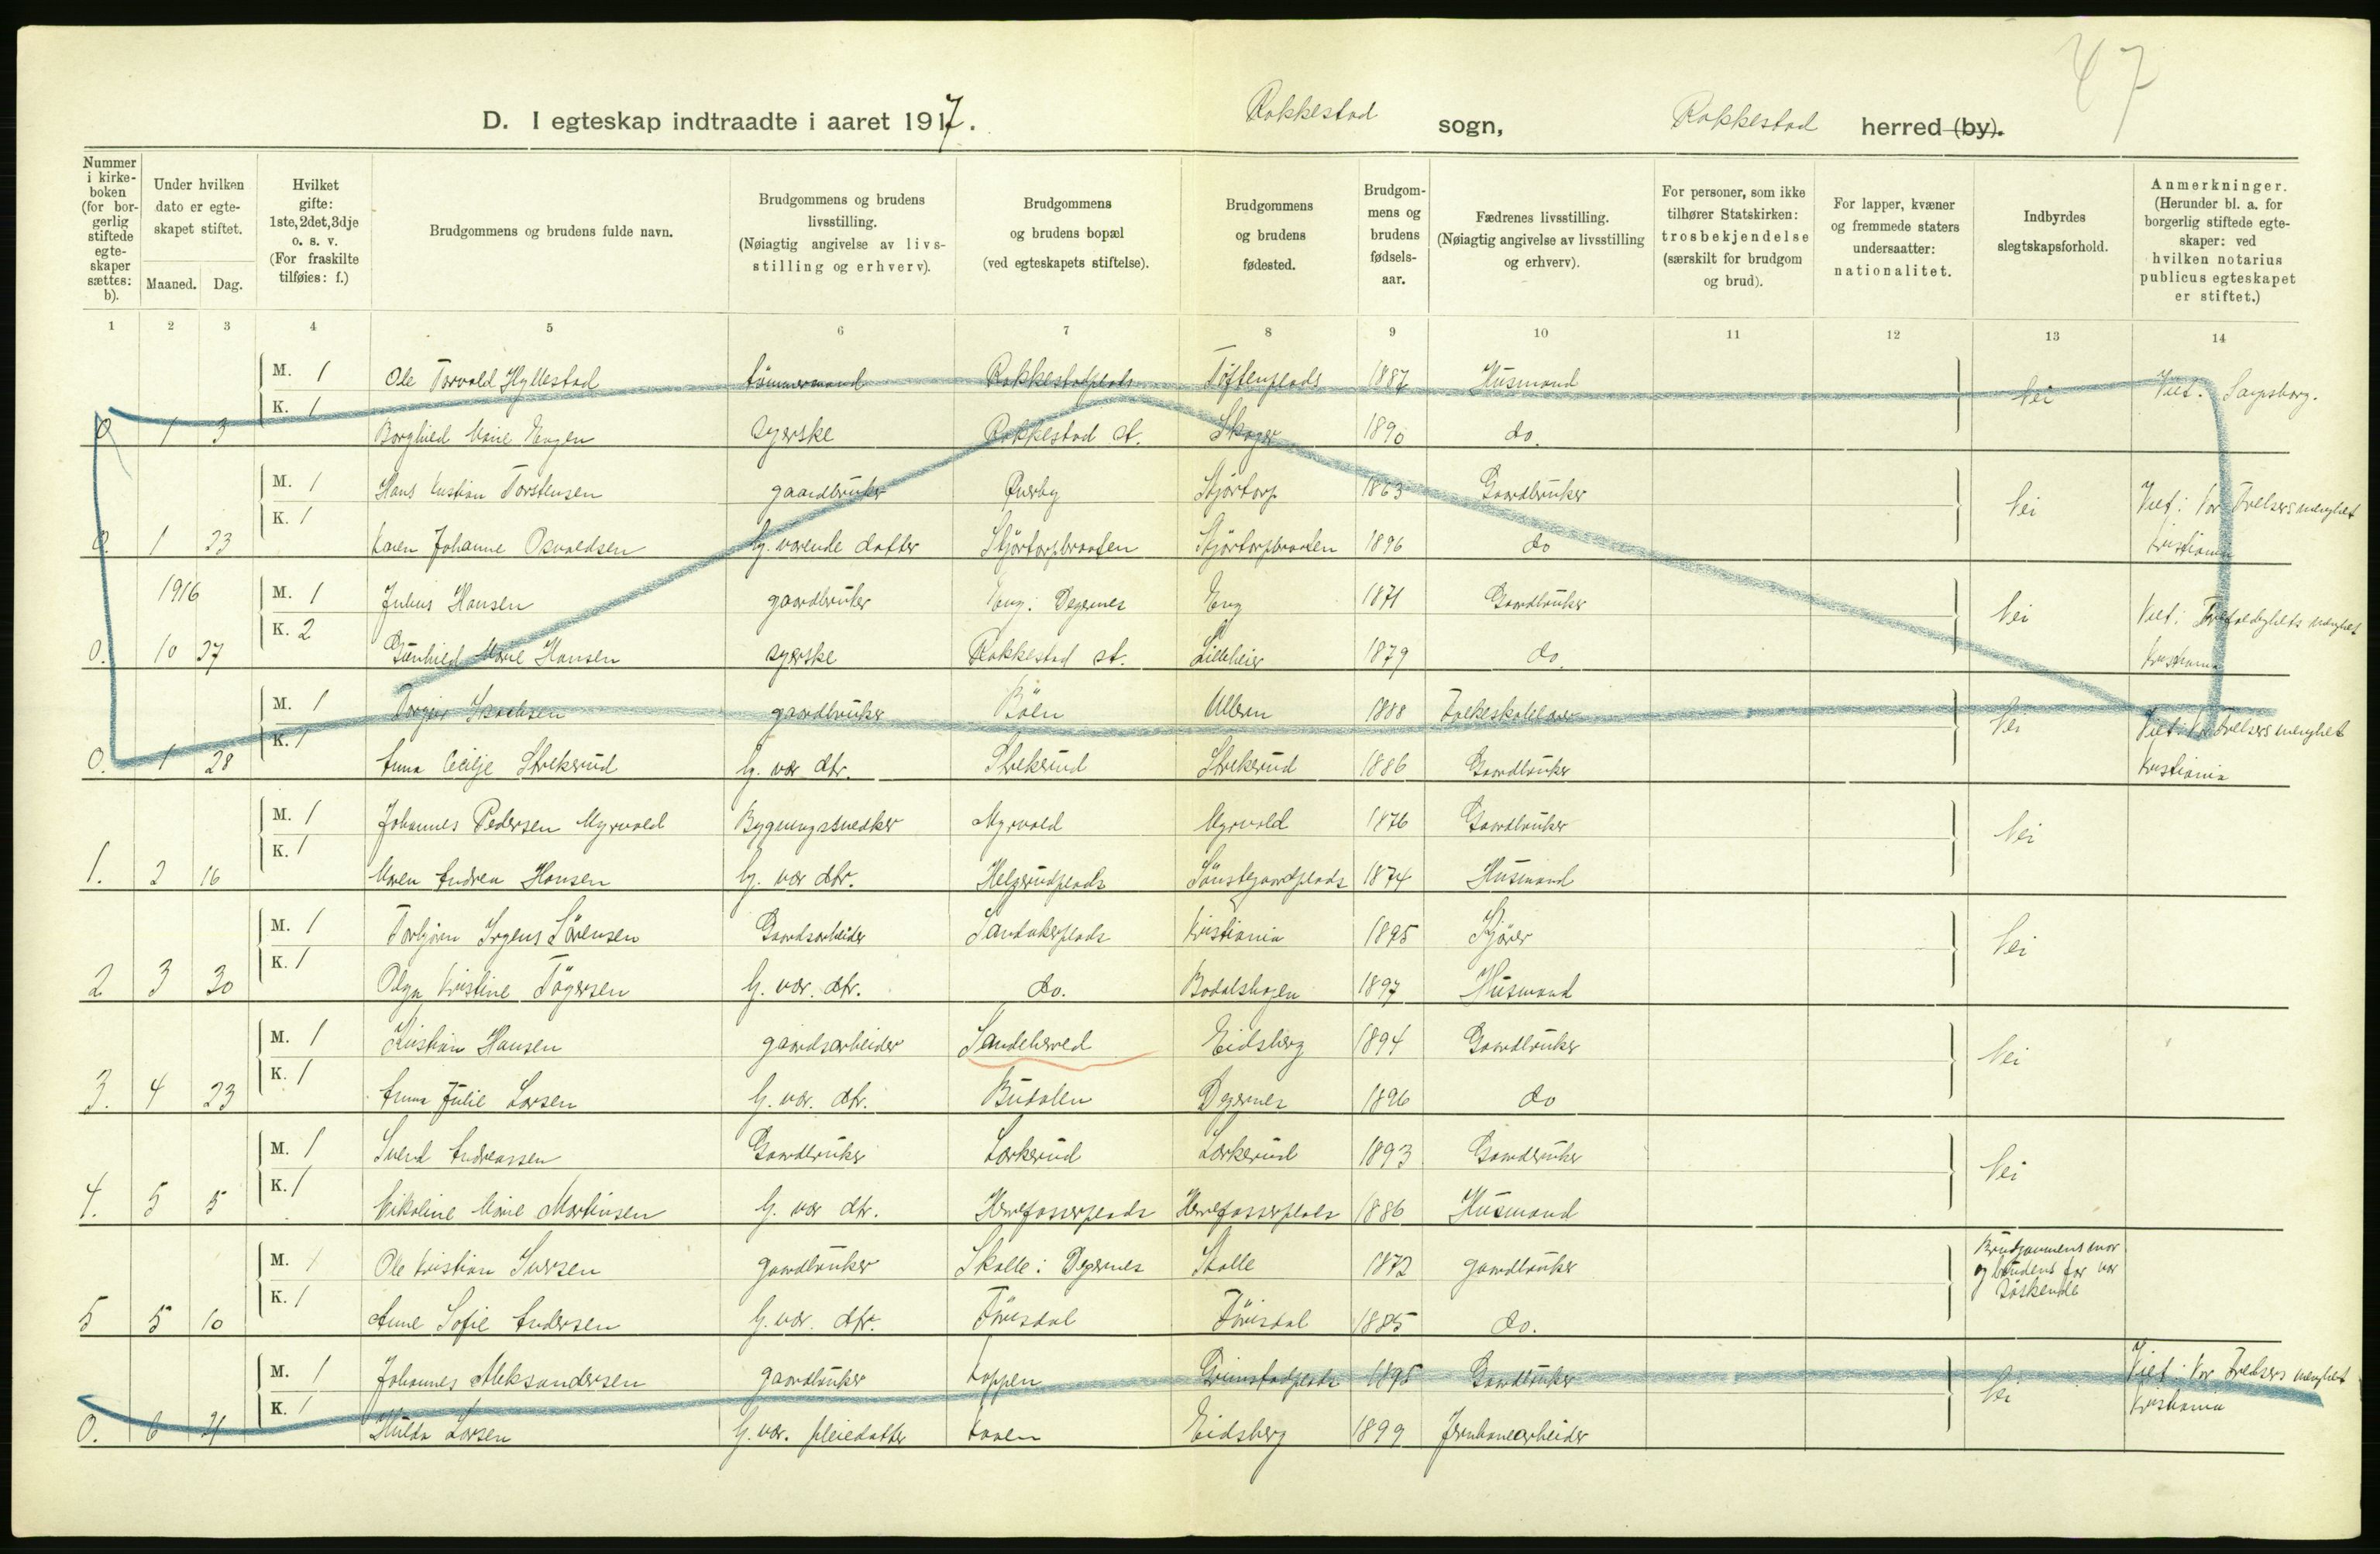 47
D. I egteskap indtraadte i aaret 1917. Rakkestad sogn, Rakkestad herred (by).
Nummer i kirkeboken (for borgerlig stiftede egteskaper sættes: b). Under hvilken dato er egteskapet stiftet. Maaned. Dag. Hvilket gifte: 1ste, 2det, 3dje o. s. v. (For fraskilte tilføies: f.) Brudgommens og brudens fulde navn. Brudgommens og brudens livsstilling. (Nøiagtig angivelse av livsstilling og erhverv). Brudgommens og brudens bopæl (ved egteskapets stiftelse). Brudgommens og brudens fødested. Brudgommens og brudens fødselsaar. Fædrenes livsstilling. (Nøiagtig angivelse av livsstilling og erhverv). For personer, som ikke tilhører Statskirken: trosbekjendelse (særskilt for brudgom og brud). For lapper, kvæner og fremmede staters undersaatter: nationalitet. Indbyrdes slegtskapsforhold. Anmerkninger. (Herunder bl. a. for borgerlig stiftede egteskaper: ved hvilken notarius publicus egteskapet er stiftet.)
1 2 3 4 5 6 7 8 9 10 11 12 13 14
M. 1 Ole Torvald Hyllestad tömmermand Rakkestadplads Töftenplads 1887 Husmand Nei Viet: Sarpsborg.
0 1 3 K. 1 Borghild Marie Engen syerske Rakkestad st. Skoger 1890 do.
M. 1 Hans Kristian Torstensen gaardbruker Skjörtorp 1863 Gaardbruker Nei Viet: Vor Frelsers menighet
0. 1 23 K. 1 Karen Johanne Osvaldsen hj. værende datter Skjörtorpbraaten Skjörtorpbraaten 1896 do Kristiania
1916 M. 1 Julius Hansen gaardbruker Eng: Degernes Eng 1871 Gaardbruker Nei Viet: Trefoldighets menighet
0. 10 27 K. 2 Gunhild Marie Hansen syerske Rakkestad st. Lilleheier 1879 do. Kristiania
M. 1 Isachsen gaardbruker Böen Ulleren 1888 Folkeskolelærer Nei Viet: Vor Frelsers menighet
0. 1 28 K. 1 Anna Cecilje Strekerud hj. vær dtr. Strekerud Strekerud 1886 Gaardbruker Kristiania
M. 1 Johannes Pedersen Myrvold Bygningssnedker Myrvold Myrvold 1876 Gaardbruker Nei
1. 2 16 K. 1 Maren Andrea Hansen hj. vær dtr. Helgerudplads 1874 Husmand
M. 1 Torbjörn Irgens Sörensen Gaardsarbeider Sandakerplads Kristiania 1895 Kjörer Nei
2 3 30 K. 1 Olga Kristine Tögersen hj. vær. dtr. do. Bodalshagen 1897 Husmand
M. 1 Kristian Hansen gaardsarbeider Sandeherred Eidsberg 1894 Gaardbruker Nei
3. 4 23 K. 1 Anna Julie Larsen hj. vær. dtr. Budalen Degernes 1896 do
M. 1 Svend Andreassen Gaardbruker Lørkerud Lørkerud 1893 Gaardbruker Nei
4. 5 5 K. 1 Nikoline Marie Martinsen hj. vær dtr. Herrefosserplads Herrefosserplads 1886 Husmand
M. 1 Ole Kristian Iversen gaardbruker Skolle: Degernes Skolle 1872 gaardbruker Brudgommens mor og brudens far var söskende
5 5 10 K. 1 Anne Sofie Andersen hj. vær. dtr. Förisdal Förisdal 1885 do.
M. 1 Johannes Aleksandersen gaardbruker Koppen Grimstadplads 1895 Gaardbruker Nei Viet: Vor Frelsers menighet
0. 6 21 K. 1 Hulda Larsen hj. vær. pleiedatter Kaaen Eidsberg 1899 Jernbanearbeider Kristiania